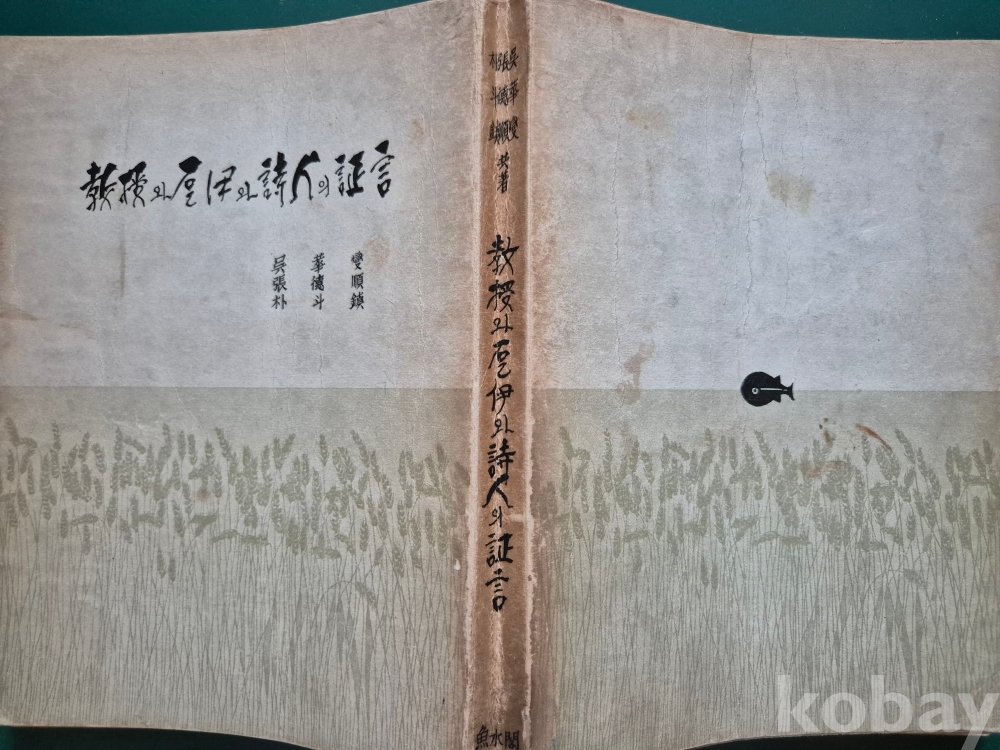 教授와 乭伊와 詩人의 証言
吳 華 燮
張 德 順
朴 斗 鎭
吳華燮
張德順
朴斗鎭
共著
教授와 乭伊와 詩人의 証言
魚水閣
kobay